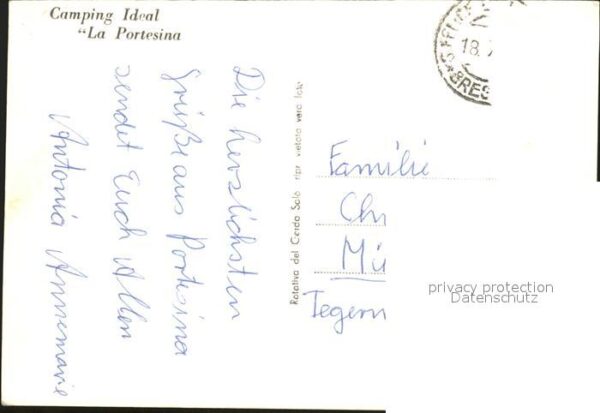 Camping Ideal
"La Portesina
Die herzlichsten
Grüße aus Portesina
sendet Euch Allen
Antonia Annemarie
Rotalva del Garda Salò ripr. vietata vera foto
18.
BRES
Familie
Ch
Mü
Tegern
privacy protection
Datenschutz